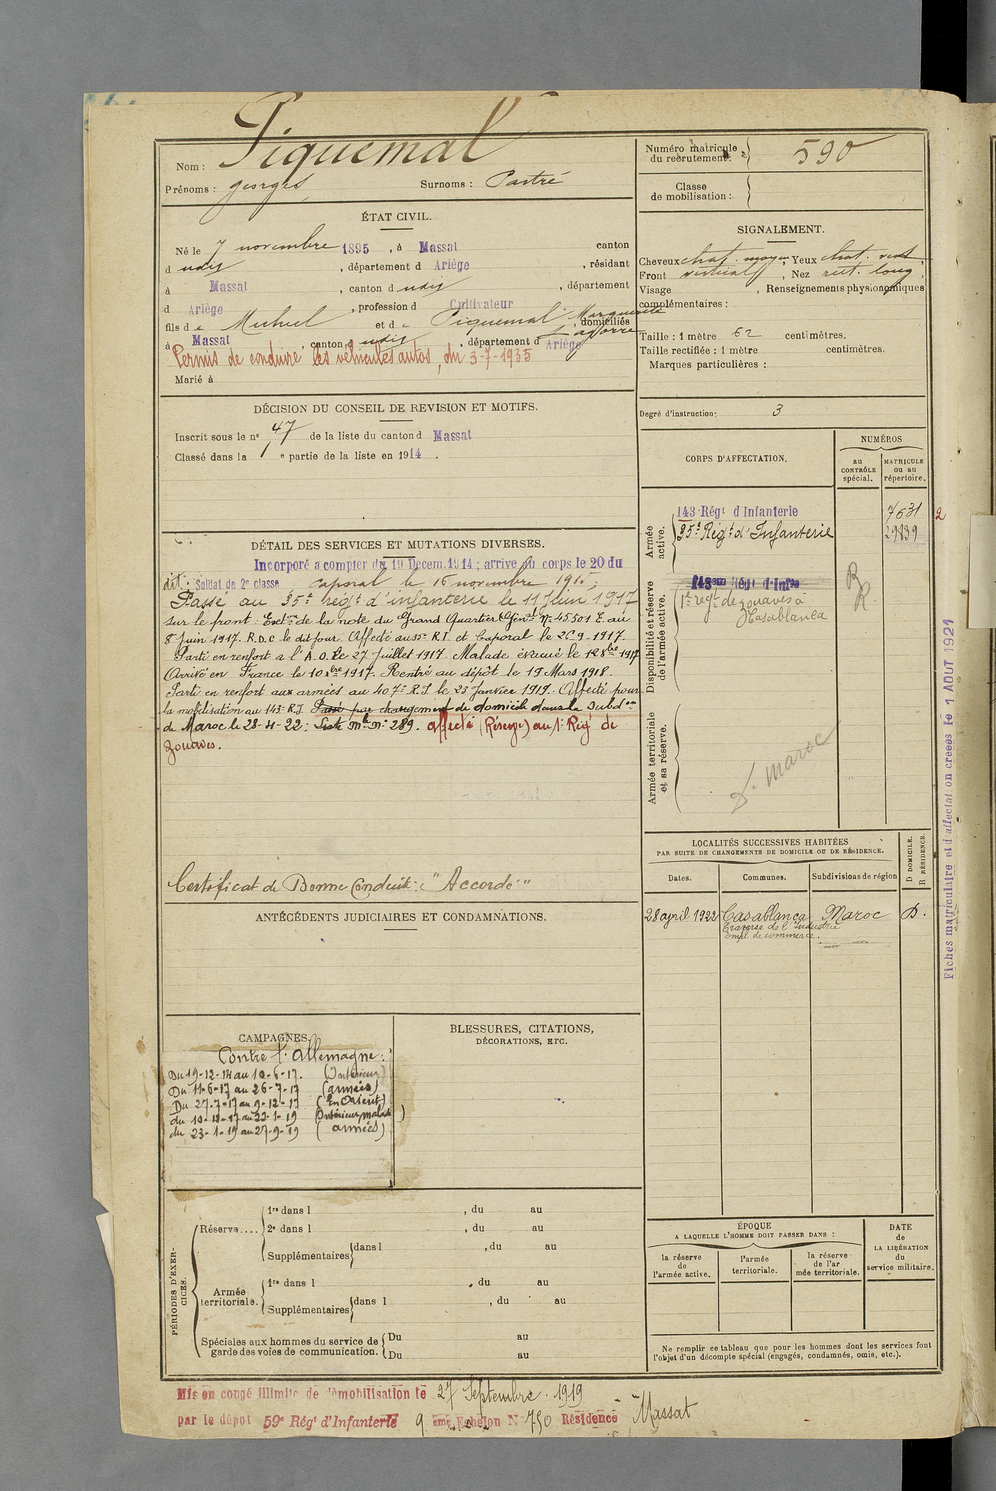 Nom : Piquemal
Prénoms : georges Surnoms : Partré
Numéro matricule du recrutement : 590
Classe de mobilisation :
ÉTAT CIVIL.
Né le 7 novembre 1895, à Massat canton
d udit, département d Ariège, résidant
à Massat, canton d udit, département
d Ariège, profession d Cultivateur
fils de Michel et de Piquemal Marguerite, domiciliés
à Massat, canton udit, département d Ariège
Permis de conduire les véhicules autos, du 3-7-1935
Marié à
SIGNALEMENT.
Cheveux chat. moyen, Yeux chat. verd.
Front vertical, Nez rect. long,
Visage , Renseignements physionomiques
complémentaires :
Taille : 1 mètre 62 centimètres.
Taille rectifiée : 1 mètre centimètres.
Marques particulières :
Degré d'instruction : 3
DÉCISION DU CONSEIL DE REVISION ET MOTIFS.
Inscrit sous le n° 47 de la liste du canton d Massat
Classé dans la 1e partie de la liste en 1914.
CORPS D'AFFECTATION.
NUMÉROS
au CONTRÔLE spécial.
MATRICULE ou au répertoire.
Armée active.
143 Régt d'Infanterie 7631
35e Régt d'Infanterie 29839
2
Disponibilité et réserve de l'armée active.
143eme Régt d'Infie
1er regt de zouaves à
Casablanca
Armée territoriale et sa réserve.
Maroc
DÉTAIL DES SERVICES ET MUTATIONS DIVERSES.
Incorporé a compter du 19 Décem. 1914 ; arrivé au corps le 20 du
dit. Soldat de 2e classe caporal le 16 novembre 1915;
Passé au 35e régt d'infanterie le 11 Juin 1917
sur le front. Exctn de la note du Grand Quartier Génal N° 45301 E. au
8 Juin 1917. R.D.C. le dit jour. Affecté au 35e R.I. et Caporal le 26.9.1917.
Parti en renfort a l'A.O. le 27 Juillet 1917. Malade évacué le 1 8bre 1917
Arrivé en France le 10 xbre 1917. Rentré au dépôt le 19 Mars 1918.
Parti en renfort aux armées au 407e R.I. le 23 Janvier 1919. Affecté pour
la mobilisation au 143e R.I. Passé par changement de domicile dans la Subdon
de Maroc le 28-4-22: Liste mle n° 289. affecté (Réserve) au 1er Régt de
Zouaves.
Certificat de Bonne Conduite : "Accordé"
ANTÉCÉDENTS JUDICIAIRES ET CONDAMNATIONS.
LOCALITÉS SUCCESSIVES HABITÉES
PAR SUITE DE CHANGEMENTS DE DOMICILE OU DE RÉSIDENCE.
Dates. Communes. Subdivisions de région D DOMICILE. R RÉSIDENCE.
28 avril 1922 Casablanca Maroc D.
Traverse de l'Industrie
Empl. de commerce.
Fiches matriculaire et d'affectation créées le 1 AOUT 1921
CAMPAGNES.
Contre l'Allemagne :
Du 19-12-14 au 10-6-17. (Intérieur)
Du 11-6-17 au 26-7-17 (armées)
Du 27-7-17 au 9-12-17 (En Orient)
du 10-12-17 au 22-1-19 (Intérieur, malade)
du 23-1-19 au 27-9-19 (armées)
BLESSURES, CITATIONS,
DÉCORATIONS, ETC.
PÉRIODES D'EXERCICES.
Réserve.... 1re dans l , du au
2e dans l , du au
Supplémentaires dans l , du au
Armée territoriale. 1re dans l , du au
Supplémentaires dans l , du au
Spéciales aux hommes du service de garde des voies de communication. Du au
Du au
ÉPOQUE
A LAQUELLE L'HOMME DOIT PASSER DANS :
la réserve de l'armée active.
l'armée territoriale.
la réserve de l'armée territoriale.
DATE de LA LIBÉRATION du service militaire.
Ne remplir ce tableau que pour les hommes dont les services font
l'objet d'un décompte spécial (engagés, condamnés, omis, etc.).
Mis en congé illimité de démobilisation le 27 Septembre 1919
par le dépôt 59e Régt d'Infanterie 9 eme Echelon N° 750 Résidence Massat